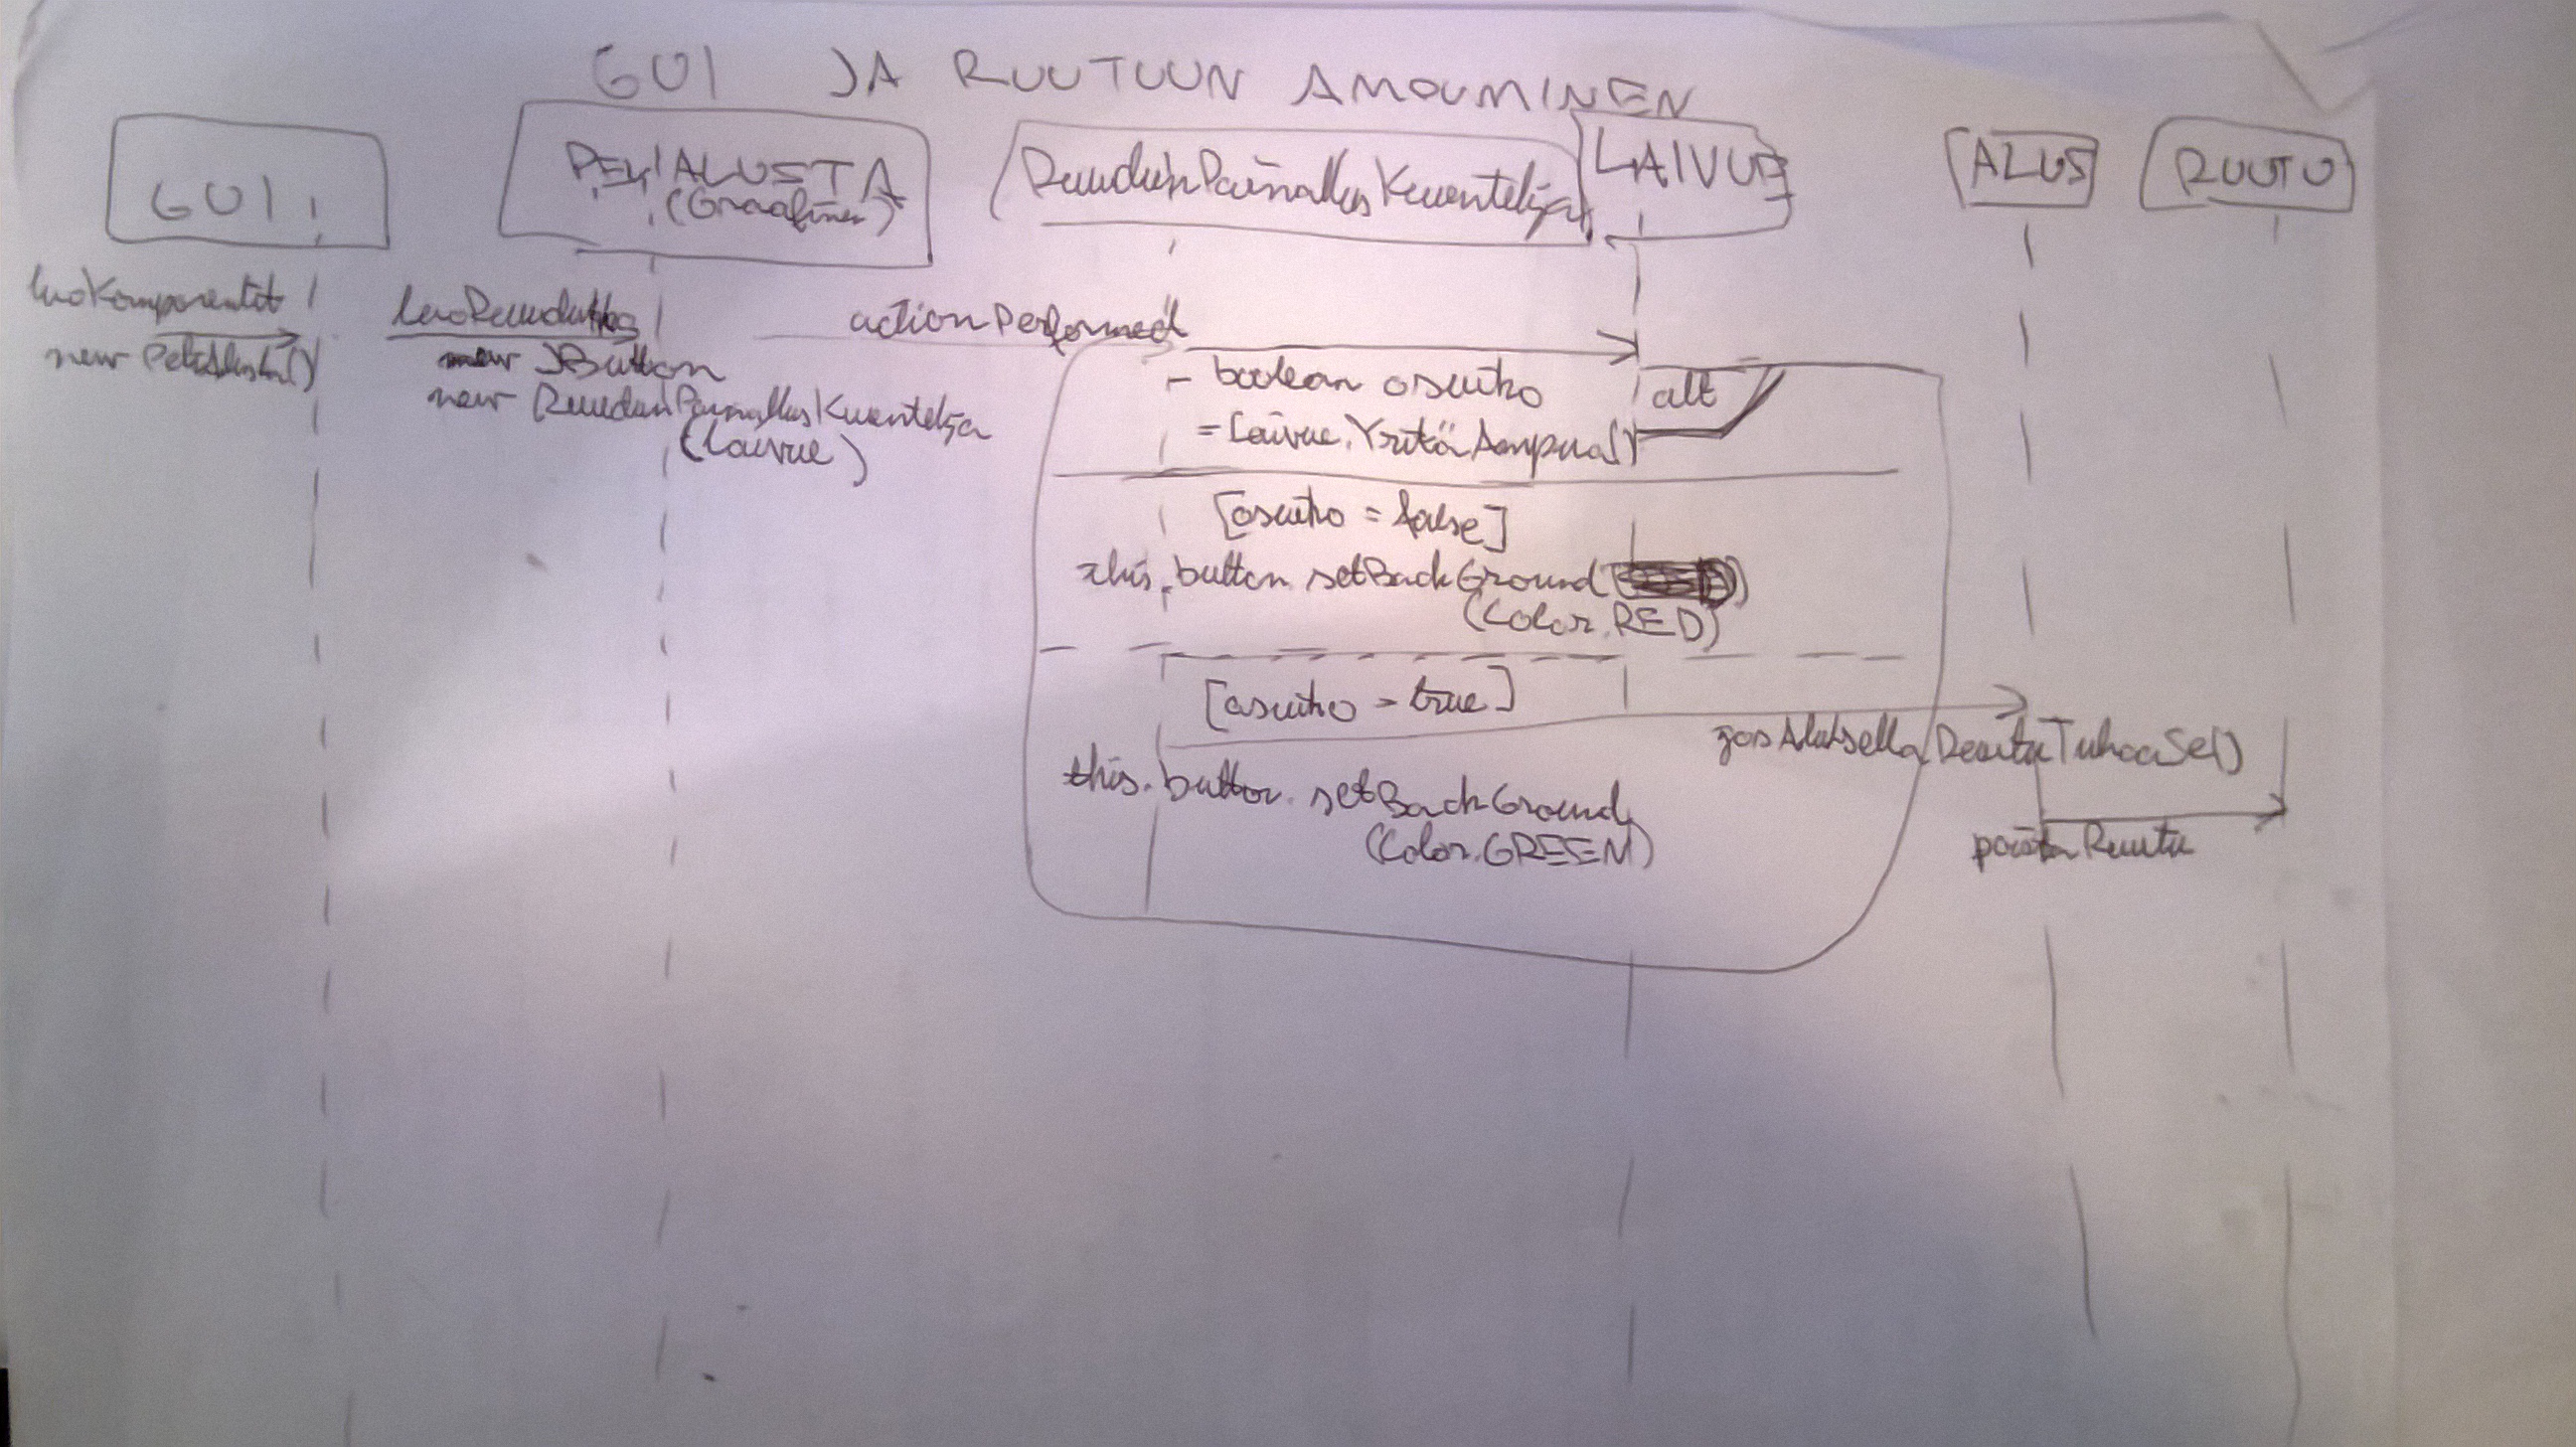 GUI JA RUUTUUN AMPUMINEN
GUI
PELIALUSTA
(Graafinen)
RuudunPainallusKuuntelija
LAIVUE
ALUS
RUUTU
luoKomponentit
new PeliAlusta()
luoRuudukko
new JButton
new RuudunPainallusKuuntelija
(Laivue)
actionPerformed
boolean osuiko
= Laivue.YritäAmpua()
alt
[osuiko = false]
this.button.setBackGround
(Color.RED)
[osuiko = true]
this.button.setBackGround
(Color.GREEN)
josAluksellaRuutuTuhoaSe()
poistaRuutu